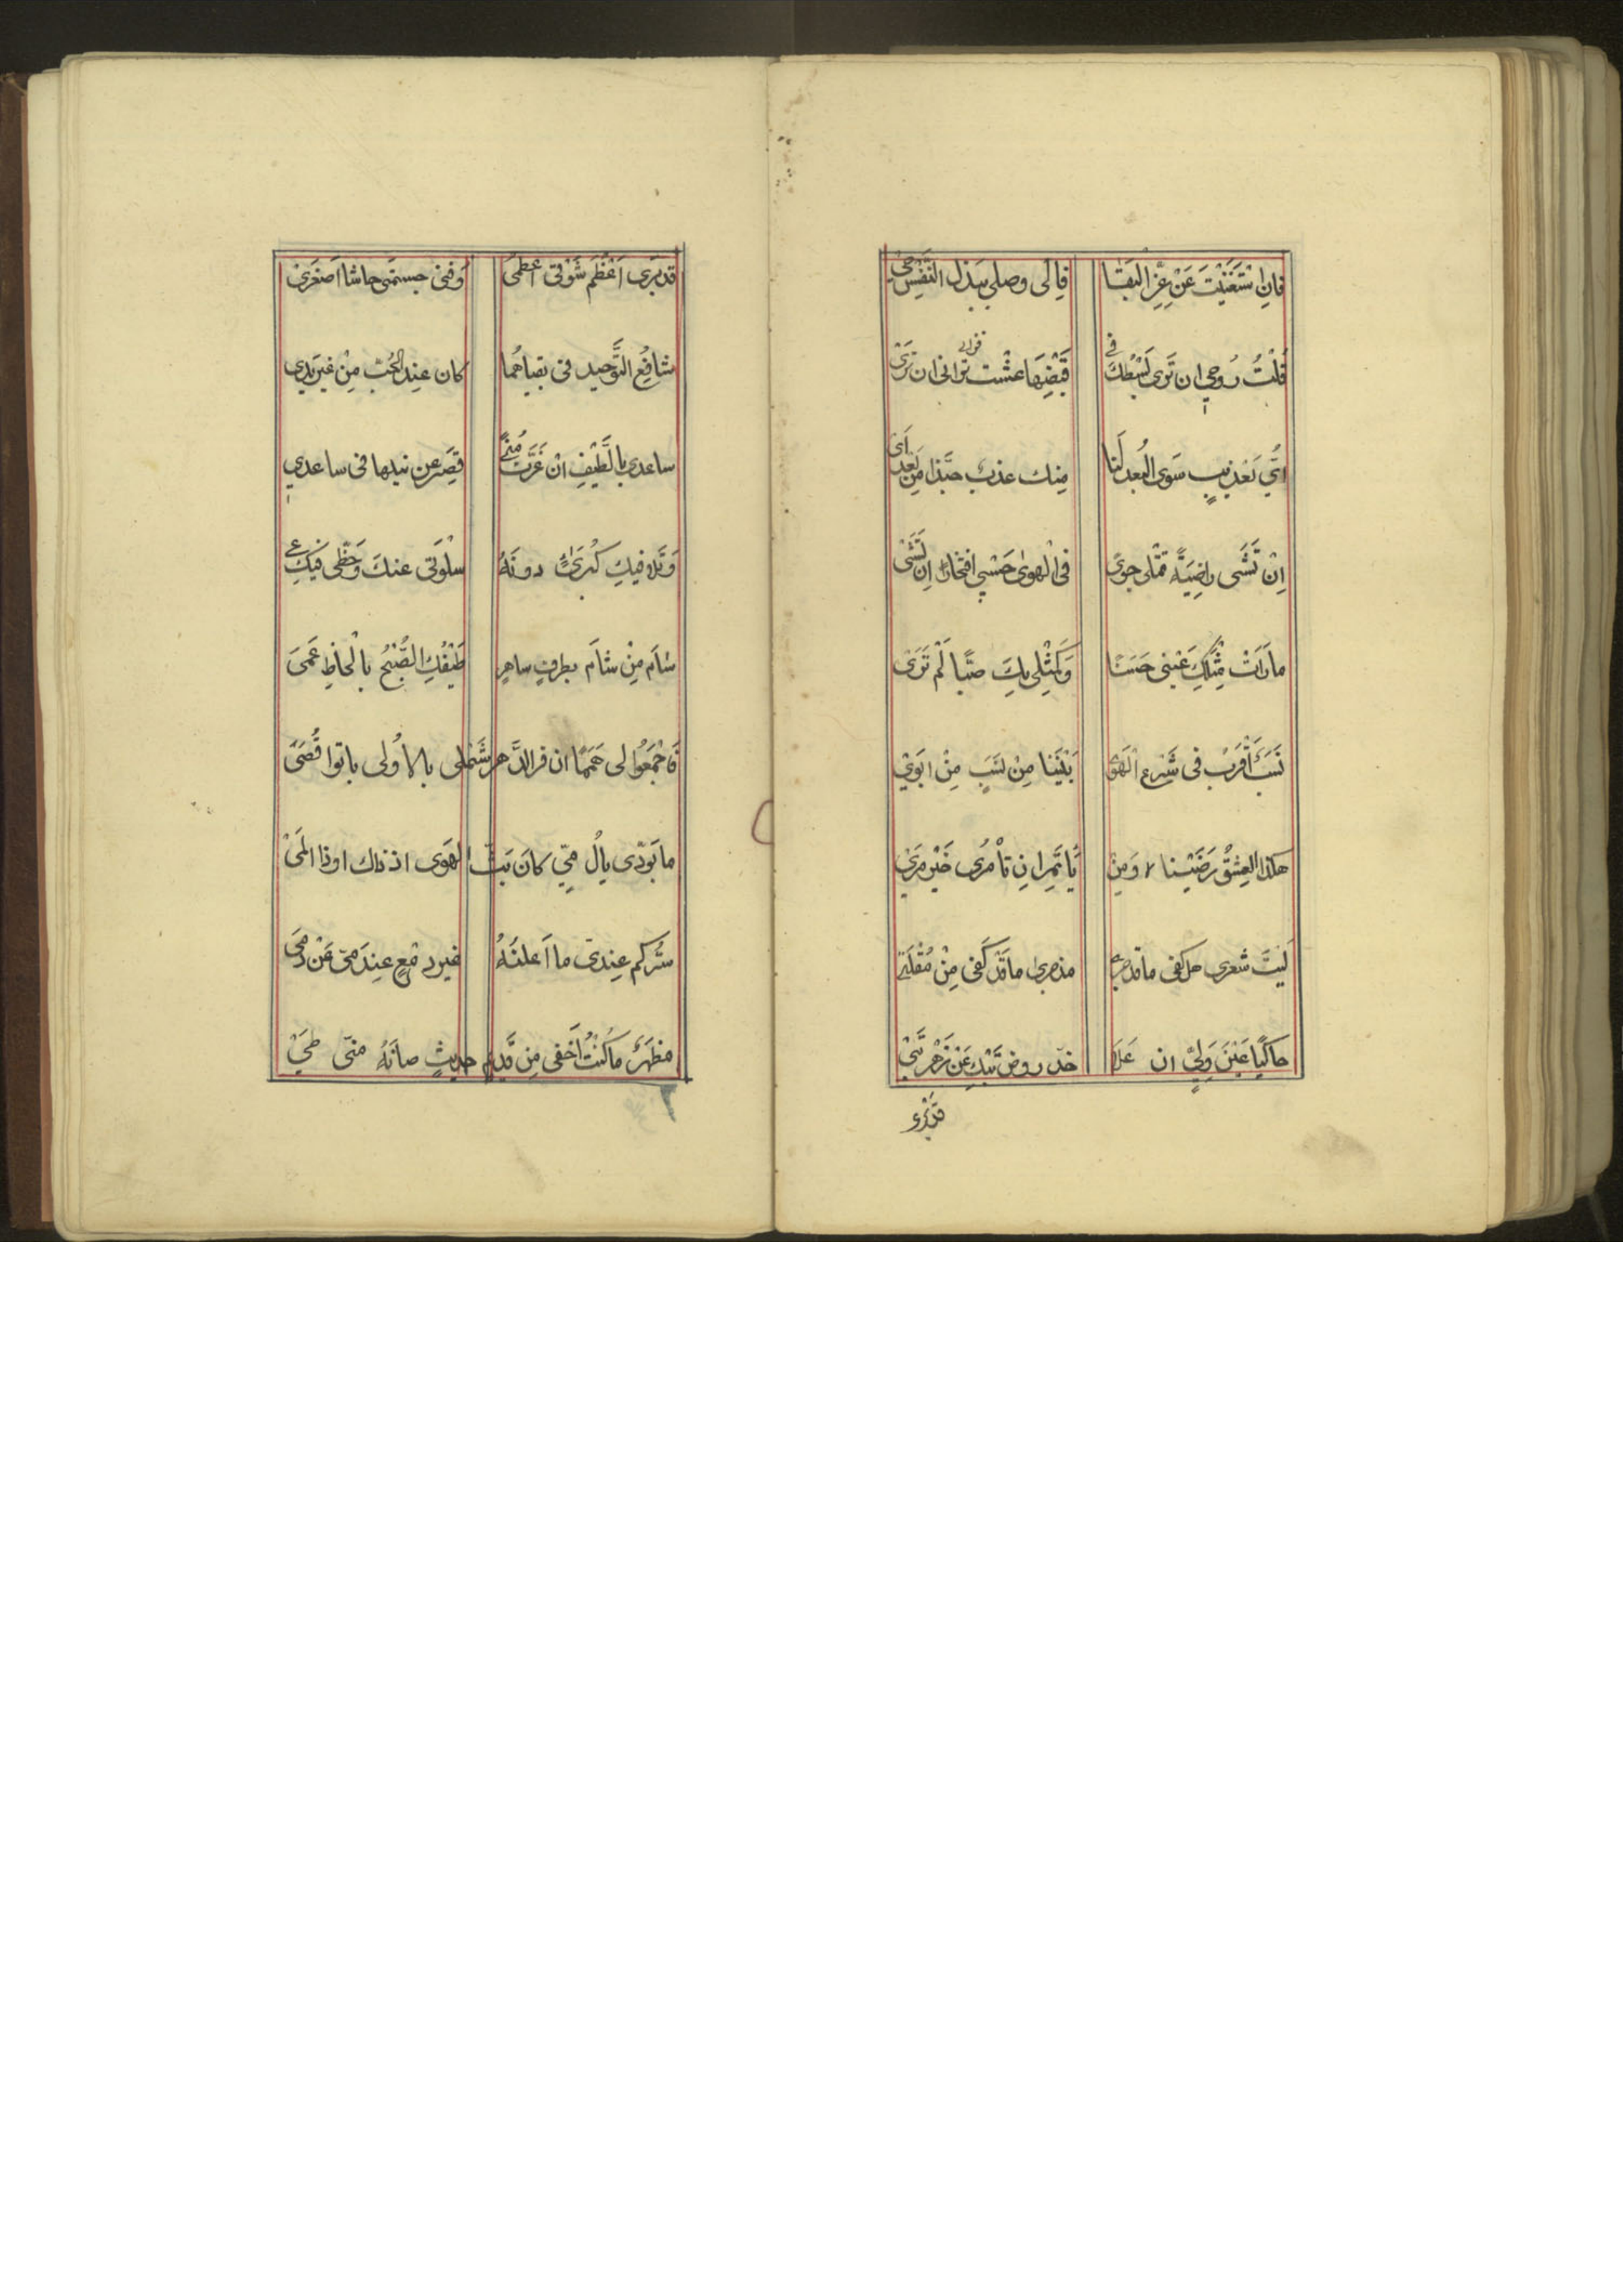 فَانِ اسْتَغْنَيْتَ عَنْ عِزِّ الْبَقَا فَالَى وصلى بِبَذْلِ النَّفْسِ حَيْ
قُلْتُ رُوحِي ان تَرَى بَسْطَكَ فى قَبْضِهَا عشْت فرأى ان تَرَىْ
اَيُّ تَعْذِيبٍ سَوَى الْبُعدِ لَنَا مِنك عذبٌ حَبَّذا مِن بَعْد اَىْ
اِنْ تَشَى راضِيَةً قَتْلى جوىً فى الْهوى حَسْبِى افتخارًا ان تَشَىْ
ما رَاَتْ مِثْلَكِ عَيْنِى حَسَنًا وَكَمِثْلِى بِكِ صَبًّا لَمْ تَرَىْ
نَسَبٌ اَقْرَبُ فى شَرْعِ الْهَوَى بَيْنَنَا مِنْ نَسَبٍ مِنْ ابَوَىْ
هكَذا الْعِشْقُ رَضَيْنا ٢ وَمِنْ يَاْتَمِرْ انِ تَأْمُرِى خَيْرَ مرَىْ
لَيْتَ شعرى هل كفى ما قد جرى مذ جرى ما قَدْ كَفَى مِنْ مُقْلَتَىْ
حاكيًا عَيْنَ وَلِيٍّ ان عَلَا خدّ روض تَبْكِ عَنْ زَهْرٍ تَبَىْ
قد بَرى
قد بَرى اَعْظَمُ شَوْقى اعظمى وَفَنى جسمى حاشا اصْغَرَىْ
شافِعُ التَّوْحيد فى بقياهُما كان عِند الْحُبّ مِنْ غير يَدى
ساعدى بالطَّيْفِ انْ عَزَّتْ مُنىً قِصَر عن نيلها فى ساعدى
سَلْوَتى عنكَ وَحَظّى فيكِ عى
شامَ مِنْ شامَ بطرفٍ ساهرٍ طَيْفَكِ الصُّبْحَ بالحاظٍ عَمَى
فَاجْمَعُوا لى هَمَمًا ان فرق الدَّهر شَمْلى بالاُولى باتوا قُصَىْ
ما بَوُدّى يالَ مىٍّ كانَ بَثّ الهَوَى اذ ذاك اودا اَلَمَىْ
سِرُّكم عِندى ما اَعلنَهُ غير دمْعٍ عِنْدَمِىٍّ عَنْ دُمَىْ
مظهرٌ ما كُنْتُ اُخْفى مِن قَديم حديثٍ صانَهُ منّى طَىْ